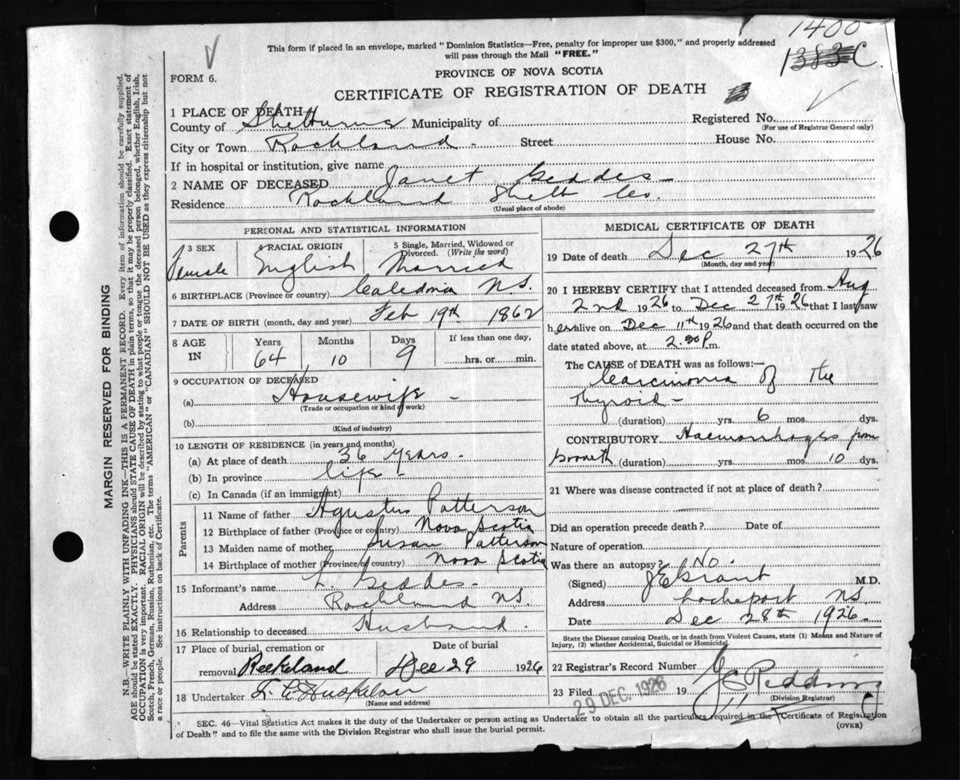 1400
1383 C.
This form if placed in an envelope, marked "Dominion Statistics—Free, penalty for improper use $300," and properly addressed
will pass through the Mail "FREE."
FORM 6.
PROVINCE OF NOVA SCOTIA
CERTIFICATE OF REGISTRATION OF DEATH
MARGIN RESERVED FOR BINDING
N.B.—WRITE PLAINLY WITH UNFADING INK—THIS IS A PERMANENT RECORD. Every item of information should be carefully supplied.
AGE should be stated EXACTLY. PHYSICIANS should STATE CAUSE OF DEATH in plain terms, so that it may be properly classified. Exact statement of
OCCUPATION is very important. RACIAL ORIGIN will be described by stating to what people or tongue the deceased person belonged, whether English, Irish,
Scotch, French, German, Russian, Ruthenian, etc. The terms "AMERICAN" or "CANADIAN" SHOULD NOT BE USED as they express citizenship but not
a race or people. See instructions on back of Certificate.
1 PLACE OF DEATH
County of Shelburne Municipality of Registered No.
(For use of Registrar General only)
City or Town Rockland Street House No.
If in hospital or institution, give name
2 NAME OF DECEASED Janet Geddes
Residence Rockland Shelb Co.
(Usual place of abode)
PERSONAL AND STATISTICAL INFORMATION
3 SEX 4 RACIAL ORIGIN 5 Single, Married, Widowed or
Divorced. (Write the word)
Female English Married
6 BIRTHPLACE (Province or country) Caledonia N.S.
7 DATE OF BIRTH (month, day and year) Feb 19th 1862
8 AGE IN Years Months Days If less than one day,
64 10 9 hrs. or min.
9 OCCUPATION OF DECEASED
(a) Housewife
(Trade or occupation or kind of work)
(b)
(Kind of industry)
10 LENGTH OF RESIDENCE (in years and months)
(a) At place of death 36 years.
(b) In province life
(c) In Canada (if an immigrant)
Parents
11 Name of father Agustus Patterson
12 Birthplace of father (Province or country) Nova Scotia
13 Maiden name of mother Susan Patterson
14 Birthplace of mother (Province or country) Nova Scotia
15 Informant's name L. Geddes
Address Rockland N.S.
16 Relationship to deceased Husband
17 Place of burial, cremation or Date of burial
removal Dec 29 1926
18 Undertaker
(Name and address)
MEDICAL CERTIFICATE OF DEATH
19 Date of death Dec 27th 1926
(Month, day and year)
20 I HEREBY CERTIFY that I attended deceased from Aug
2nd 1926 to Dec 27th 1926 that I last saw
her alive on Dec 11th 1926 and that death occurred on
date stated above, at P.m.
The CAUSE OF DEATH was as follows:—
Carcinoma of the
Thyroid
(duration) yrs. 6 mos. dys.
CONTRIBUTORY Haemorrhages from
(duration) yrs. mos. 10 dys.
21 Where was disease contracted if not at place of death?
Did an operation precede death? Date of
Nature of operation
Was there an autopsy? No
(Signed) Grant M.D.
Address Lockeport NS
Date Dec 28th 1926.
State the Disease causing Death, or in death from Violent Causes, state (1) Means and Nature of
Injury, (2) whether Accidental, Suicidal or Homicidal.
22 Registrar's Record Number
23 Filed 29 DEC. 1926 19 Redding
(Division Registrar)
SEC. 46—Vital Statistics Act makes it the duty of the Undertaker or person acting as Undertaker to obtain all the particulars required in the Certificate of Registration
of Death" and to file the same with the Division Registrar who shall issue the burial permit.
(OVER)